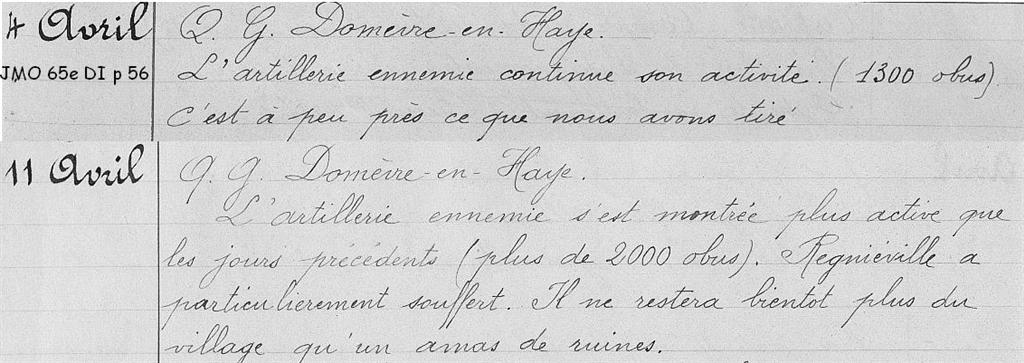 4 Avril
JMO 65e DI p 56
Q. G. Domèvre-en-Haye.
L'artillerie ennemie continue son activité. (1300 obus)
c'est à peu près ce que nous avons tiré
11 Avril
Q. G. Domèvre-en-Haye.
L'artillerie ennemie s'est montrée plus active que
les jours précédents (plus de 2000 obus). Regniéville a
particulierement souffert. Il ne restera bientot plus du
village qu'un amas de ruines.